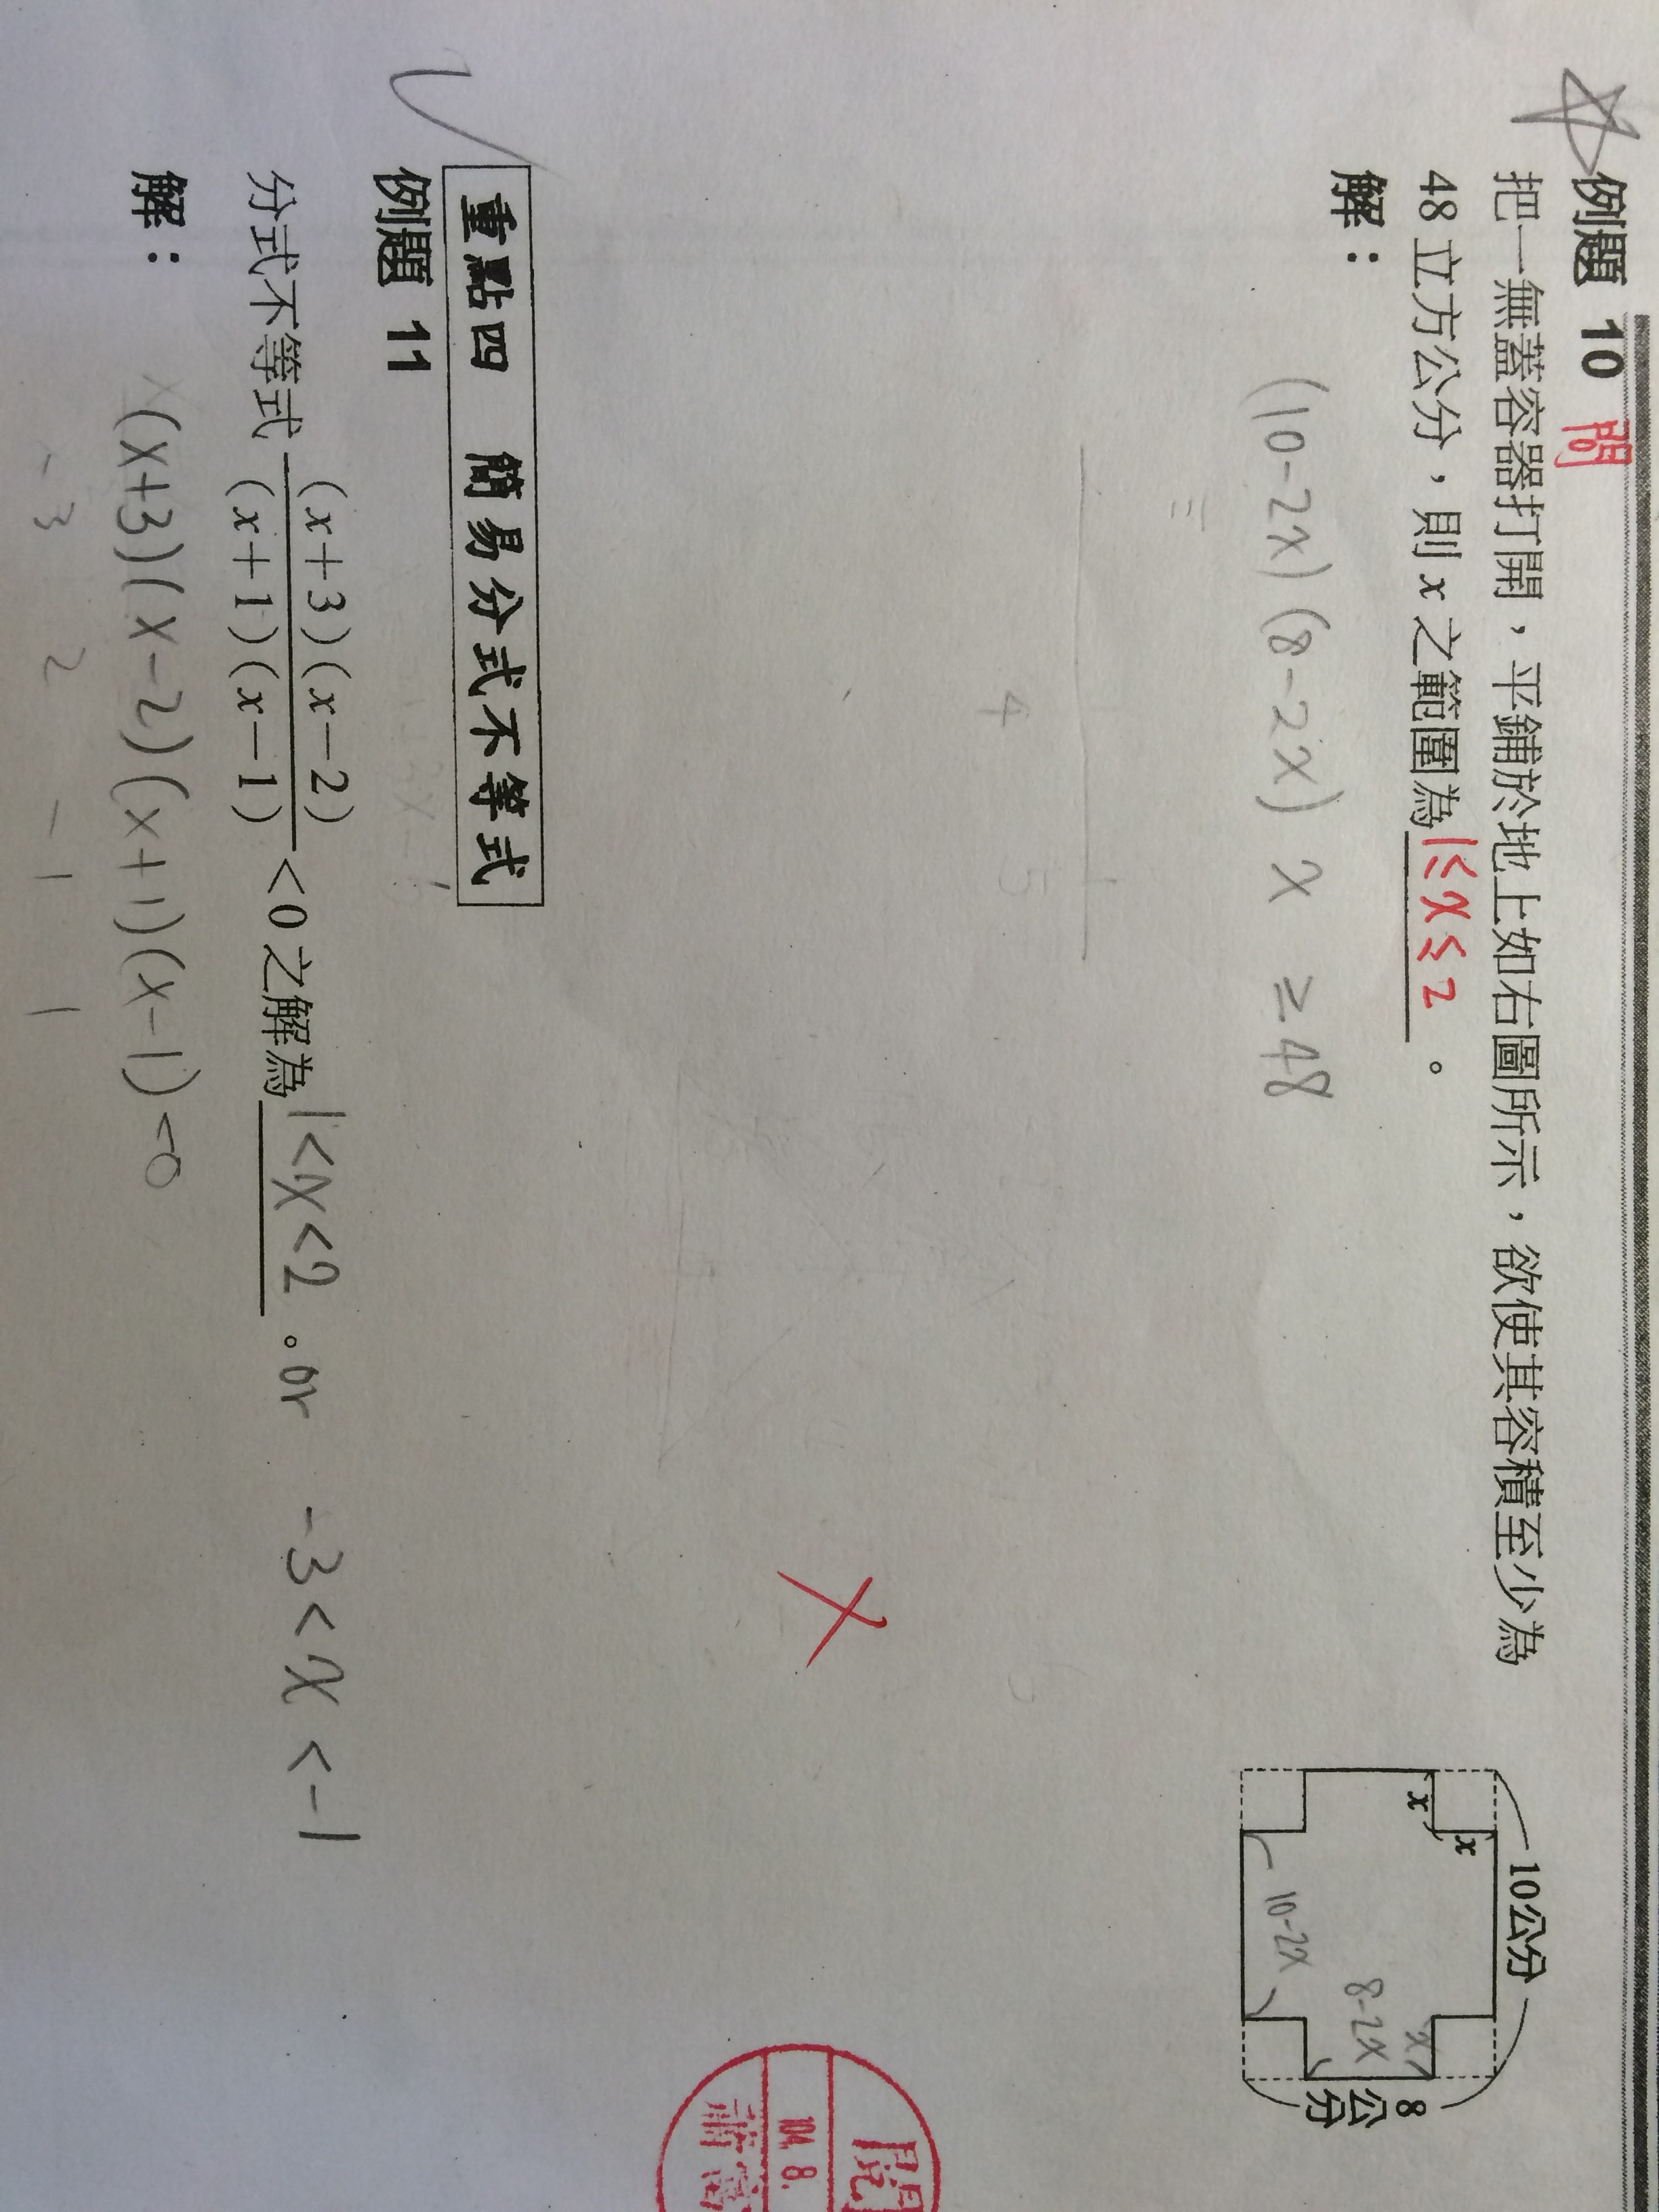 例題 10 問
把一無蓋容器打開，平鋪於地上如右圖所示，欲使其容積至少為
48 立方公分，則 x 之範圍為 1≤x≤2 。
解：
(10-2x)(8-2x) x ≥ 48
4 5
10公分
x
x
x
8-2x
10-2x
8公分
重點四 簡易分式不等式
例題 11
分式不等式 (x+3)(x-2)/(x+1)(x-1) <0 之解為 1<x<2 。or -3<x<-1
解：
(x+3)(x-2)(x+1)(x-1)<0
-3 2 -1 1
閱
104. 8.